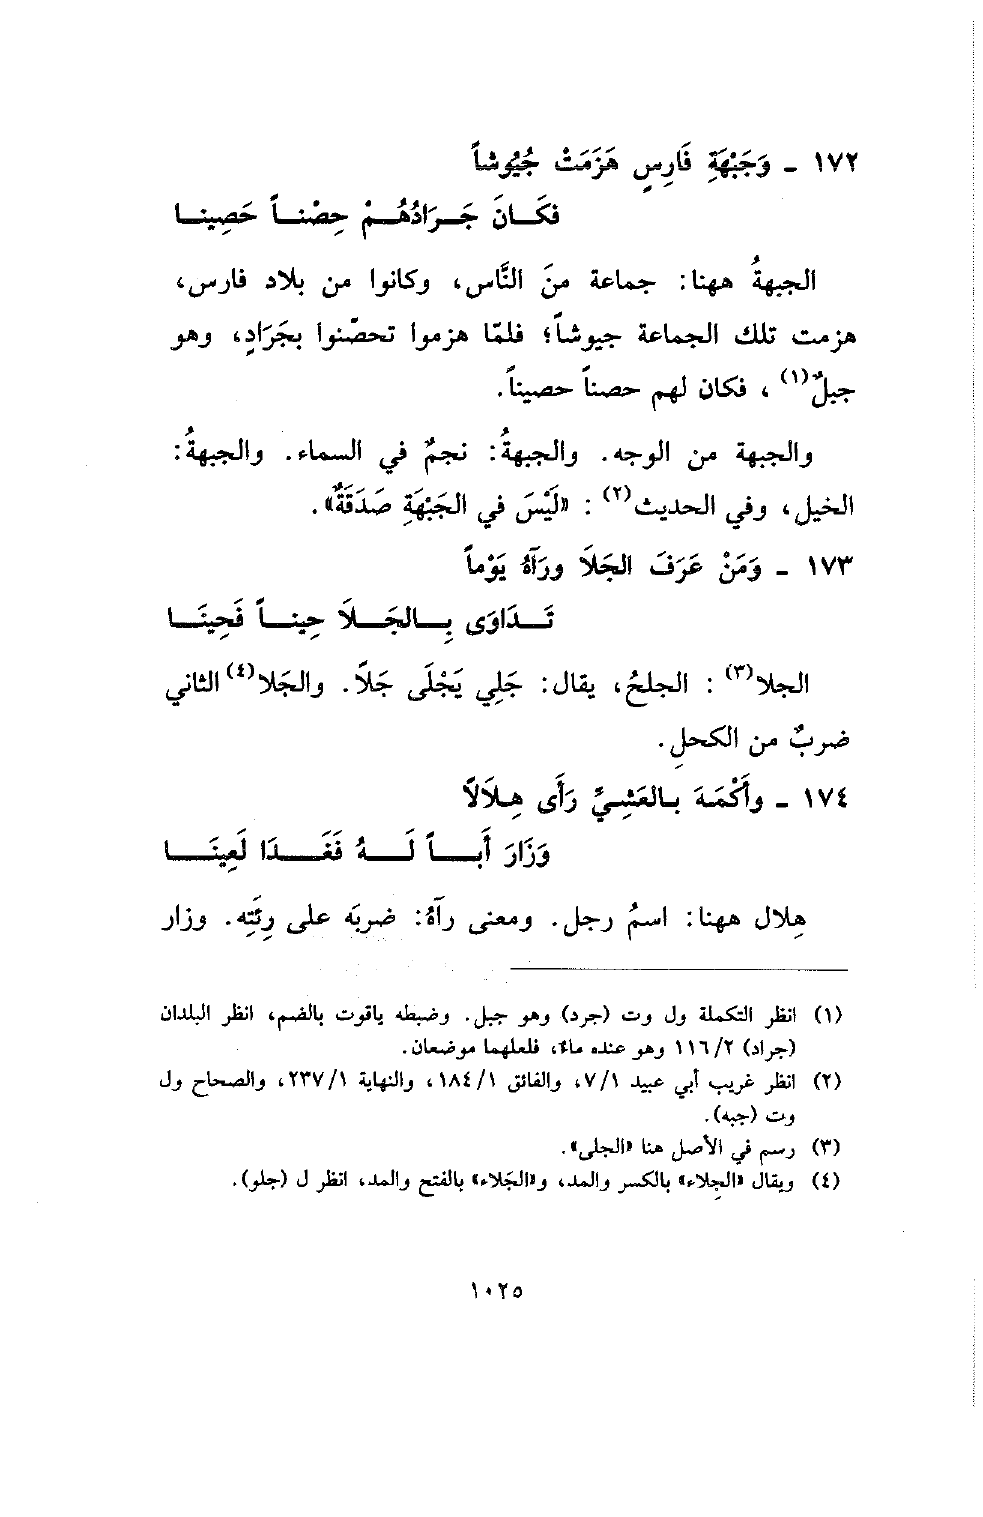 ١٧٢ ـ وَجَبْهَةِ فَارِسٍ هَزَمَتْ جُيُوشاً
فكَـانَ جَـرَادُهُـمْ حِصْنـاً حَصِينـا
الجبهةُ ههنا: جماعة منَ النَّاس، وكانوا من بلاد فارس،
هزمت تلك الجماعة جيوشاً؛ فلمّا هزموا تحصّنوا بجَرَادٍ، وهو
جبلٌ(١)، فكان لهم حصناً حصيناً.
والجبهة من الوجه. والجبهةُ: نجمٌ في السماء. والجبهةُ:
الخيل، وفي الحديث(٢): «لَيْسَ في الجَبْهَةِ صَدَقَةٌ».
١٧٣ ـ وَمَنْ عَرَفَ الجَلَا ورَآهُ يَوْماً
تَـدَاوَى بِـالجَـلَا حِينـاً فَحِينَـا
الجلا(٣): الجلحُ، يقال: جَلِي يَجْلَى جَلًا. والجَلا(٤) الثاني
ضربٌ من الكحلِ.
١٧٤ ـ وأَكْمَهَ بالعَشِيِّ رَأَى هِلَالًا
وَزَارَ أَبـاً لَـهُ فَغَـدَا لَعِينَـا
هِلال ههنا: اسمُ رجل. ومعنى رآهُ: ضربَه على رِئَتِه. وزار
(١) انظر التكملة ول وت (جرد) وهو جبل. وضبطه ياقوت بالضم، انظر البلدان
(جراد) ١١٦/٢ وهو عنده ماء، فلعلهما موضعان.
(٢) انظر غريب أبي عبيد ٧/١، والفائق ١٨٤/١، والنهاية ٢٣٧/١، والصحاح ول
وت (جبه).
(٣) رسم في الأصل هنا «الجلى».
(٤) ويقال «الجِلاء» بالكسر والمد، و«الجَلاء» بالفتح والمد، انظر ل (جلو).
١٠٢٥